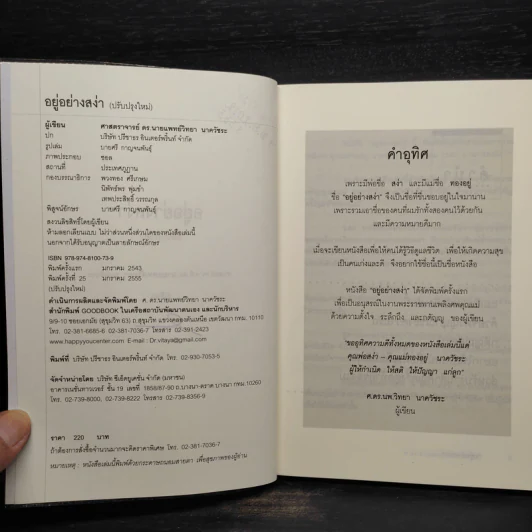 อยู่อย่างสง่า (ปรับปรุงใหม่)
ผู้เขียน ศาสตราจารย์ ดร.นายแพทย์วิทยา นาควัชระ
ปก บริษัท ปรีชาธร อินเตอร์พริ้นท์ จำกัด
รูปเล่ม นายศรี กาญจนพันธุ์
ภาพประกอบ ชอล
สถานที่ ประเทศภูฏาน
กองบรรณาธิการ พวงทอง ศรีเกษม
นิพัทธ์พร พุ่มขำ
เทพประสิทธิ์ วรรณกุล
พิสูจน์อักษร นายศรี กาญจนพันธุ์
สงวนลิขสิทธิ์โดยผู้เขียน
ห้ามลอกเลียนแบบ ไม่ว่าส่วนหนึ่งส่วนใดของหนังสือเล่มนี้
นอกจากได้รับอนุญาตเป็นลายลักษณ์อักษร
ISBN 978-974-8100-73-9
พิมพ์ครั้งแรก มกราคม 2543
พิมพ์ครั้งที่ 25 มกราคม 2555
(ปรับปรุงใหม่)
ดำเนินการผลิตและจัดพิมพ์โดย ศ.ดร.นายแพทย์วิทยา นาควัชระ
สำนักพิมพ์ GOODBOOK ในเครือสถาบันพัฒนาตนเอง และนักบริหาร
9/9-10 ซอยเอกมัย (สุขุมวิท 63) ถ.สุขุมวิท แขวงคลองตันเหนือ เขตวัฒนา กทม. 10110
โทร. 02-381-6685-6 02-381-7036-7 โทรสาร 02-391-2423
www.happyyoucenter.com : Dr.vitaya@gmail.com
พิมพ์ที่ บริษัท ปรีชาธร อินเตอร์พริ้นท์ จำกัด โทร. 02-930-7053-5
จัดจำหน่ายโดย บริษัท ซีเอ็ดยูเคชั่น จำกัด (มหาชน)
อาคารเนชั่นทาวเวอร์ ชั้น 19 เลขที่ 1858/87-90 ถ.บางนา-ตราด บางนา กทม.10260
โทร. 02-739-8000, 02-739-8222 โทรสาร 02-739-8356-9
ราคา 220 บาท
ถ้าต้องการสั่งซื้อจำนวนมากจะคิดราคาพิเศษ โทร. 02-381-7036-7
หมายเหตุ : หนังสือเล่มนี้พิมพ์ด้วยกระดาษถนอมสายตา เพื่อสุขภาพของผู้อ่าน
คำอุทิศ
เพราะมีพ่อชื่อ สง่า และมีแม่ชื่อ ทองอยู่
ชื่อ "อยู่อย่างสง่า" จึงเป็นชื่อที่ชื่นชอบอยู่ในใจมานาน
เพราะรวมเอาชื่อของคนที่ผมรักทั้งสองคนไว้ด้วยกัน
และมีความหมายดีมาก
เมื่อจะเขียนหนังสือเพื่อให้คนได้รู้วิธีดูแลชีวิต เพื่อให้เกิดความสุข
เป็นคนเก่งและดี จึงอยากใช้ชื่อนี้เป็นชื่อหนังสือ
หนังสือ "อยู่อย่างสง่า" ได้จัดพิมพ์ครั้งแรก
เพื่อเป็นอนุสรณ์ในงานพระราชทานเพลิงศพคุณแม่
ด้วยความตั้งใจ ระลึกถึง และกตัญญู ของผู้เขียน
"ขออุทิศความดีทั้งหมดของหนังสือเล่มนี้แด่
คุณพ่อสง่า - คุณแม่ทองอยู่ นาควัชระ
ผู้ให้กำเนิด ให้สติ ให้ปัญญา แก่ลูก"
ศ.ดร.นพ.วิทยา นาควัชระ
ผู้เขียน